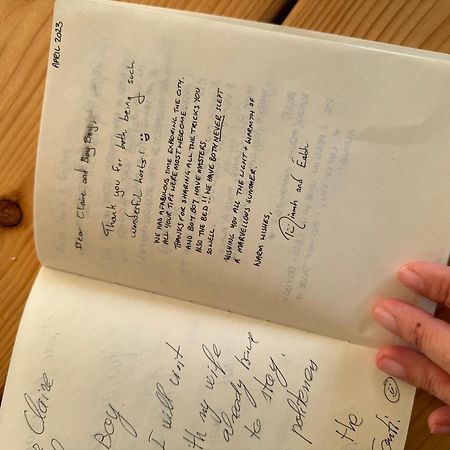 APRIL 2023
Dear Claire and Boy Boy,
Thank you for both being such
wonderful hosts!!
WE HAD A FABULOUS TIME EXPLORING THE CITY.
ALL YOUR TIPS WERE MOST WELCOME.
THANKS FOR SHARING ALL THE TRICKS YOU
AND BOY BOY HAVE MASTERS.
ALSO THE BED!! WE HAVE BOTH NEVER SLEPT
SO WELL.
WISHING YOU ALL THE LIGHT + WARMTH OF
A MARVELLOUS SUMMER.
WARM WISHES,
and
Claire
Boy.
I will visit
with my wife
already have
to stay.
politeness
the